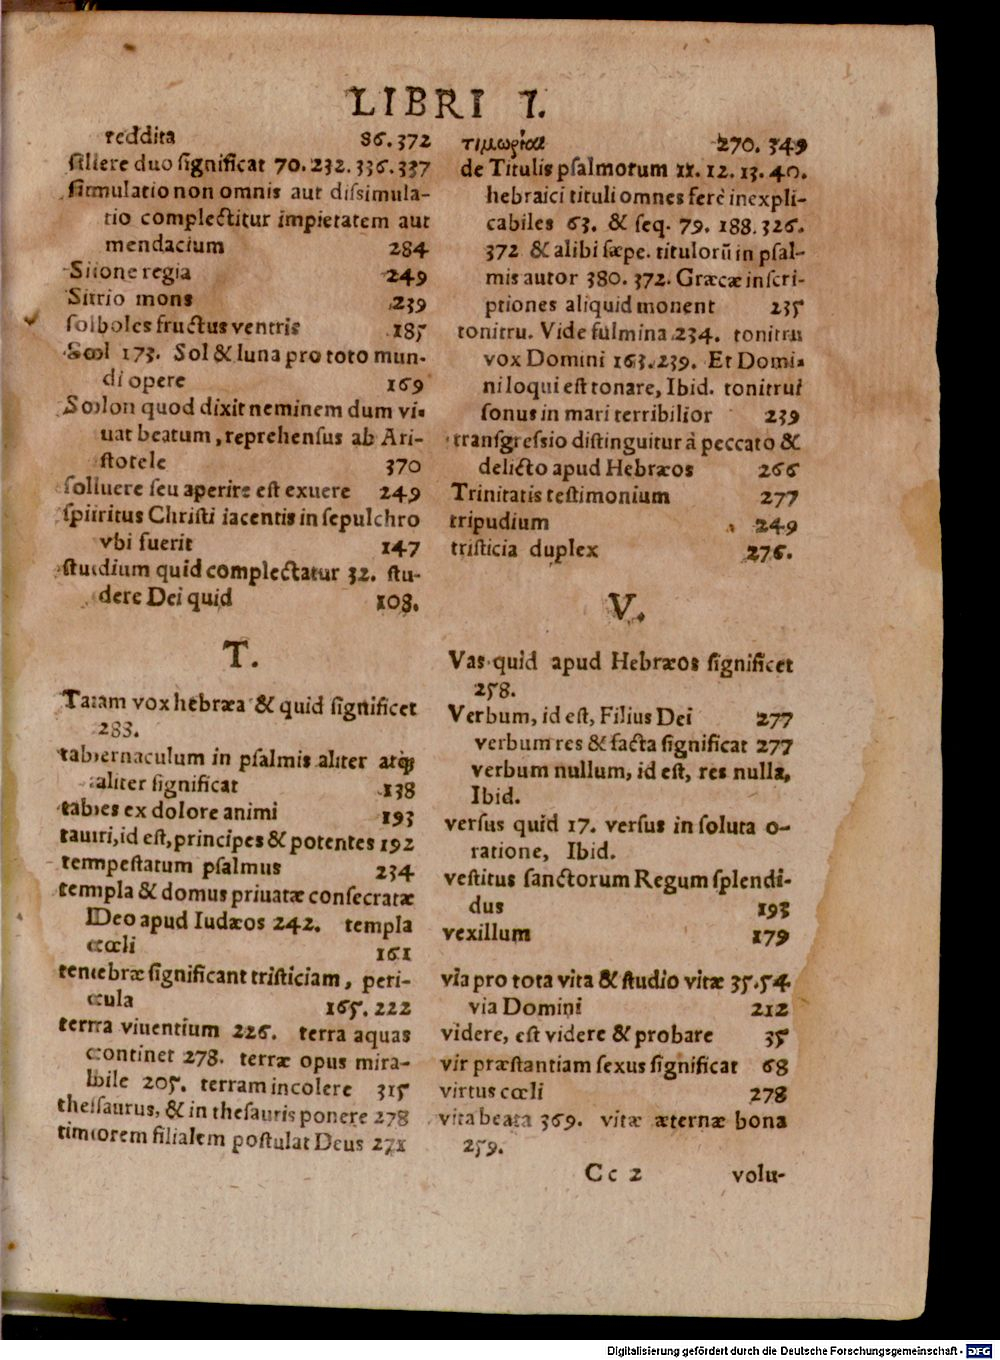 LIBRI I.
reddita 86.372
sillere duo significat 70.232.336.337
simulatio non omnis aut dissimula-
tio complectitur impietatem aut
mendacium 284
Siione regia 249
Sirio mons 239
soboles fructus ventris 185
Sol 173. Sol & luna pro toto mun-
di opere 169
Solon quod dixit neminem dum vi-
uat beatum, reprehensus ab Ari-
stotele 370
soluere seu aperire est exuere 249
spiritus Christi iacentis in sepulchro
vbi fuerit 147
studium quid complectatur 32. stu-
dere Dei quid 108.
T.
Taam vox hebræa & quid significet
283.
tabernaculum in psalmis aliter atq;
aliter significat 138
tabes ex dolore animi 193
tauri, id est, principes & potentes 192
tempestatum psalmus 234
templa & domus priuatæ consecratæ
Deo apud Iudæos 242. templa
cœli 161
tenebræ significant tristiciam, peri-
cula 165.222
terra viuentium 226. terra aquas
continet 278. terræ opus mira-
bile 205. terram incolere 315
thesaurus, & in thesauris ponere 278
timorem filialem postulat Deus 271
τιμωρίαι 270.349
de Titulis psalmorum 11.12.13.40.
hebraici tituli omnes ferè inexpli-
cabiles 63. & seq. 79. 188.326.
372 & alibi sæpe. titulorũ in psal-
mis autor 380.372. Græcæ inscri-
ptiones aliquid monent 235
tonitru. Vide fulmina 234. tonitru
vox Domini 163.239. Et Domi-
ni loqui est tonare, Ibid. tonitrui
sonus in mari terribilior 239
transgressio distinguitur à peccato &
delicto apud Hebræos 266
Trinitatis testimonium 277
tripudium 249
tristicia duplex 276.
V.
Vas quid apud Hebræos significet
258.
Verbum, id est, Filius Dei 277
verbum res & facta significat 277
verbum nullum, id est, res nulla,
Ibid.
versus quid 17. versus in soluta o-
ratione, Ibid.
vestitus sanctorum Regum splendi-
dus 193
vexillum 179
via pro tota vita & studio vitæ 35.54.
via Domini 212
videre, est videre & probare 35
vir præstantiam sexus significat 68
virtus cœli 278
vita beata 369. vitæ æternæ bona
259.
Cc 2 volu-
Digitalisierung gefördert durch die Deutsche Forschungsgemeinschaft - DFG